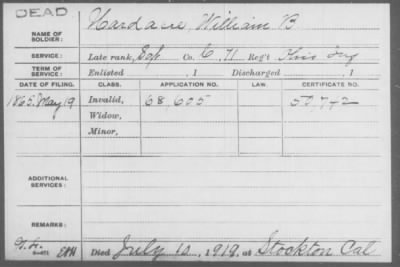 DEAD
NAME OF SOLDIER: William B
SERVICE: Late rank, Co. 71 Reg't Inf
TERM OF SERVICE: Enlisted , 1 Discharged , 1
DATE OF FILING. CLASS. APPLICATION NO. LAW. CERTIFICATE NO.
1865, May 19 Invalid, 68,605 50,742
Widow,
Minor,
ADDITIONAL SERVICES:
REMARKS:
Died July 10, 1919, at Stockton Cal